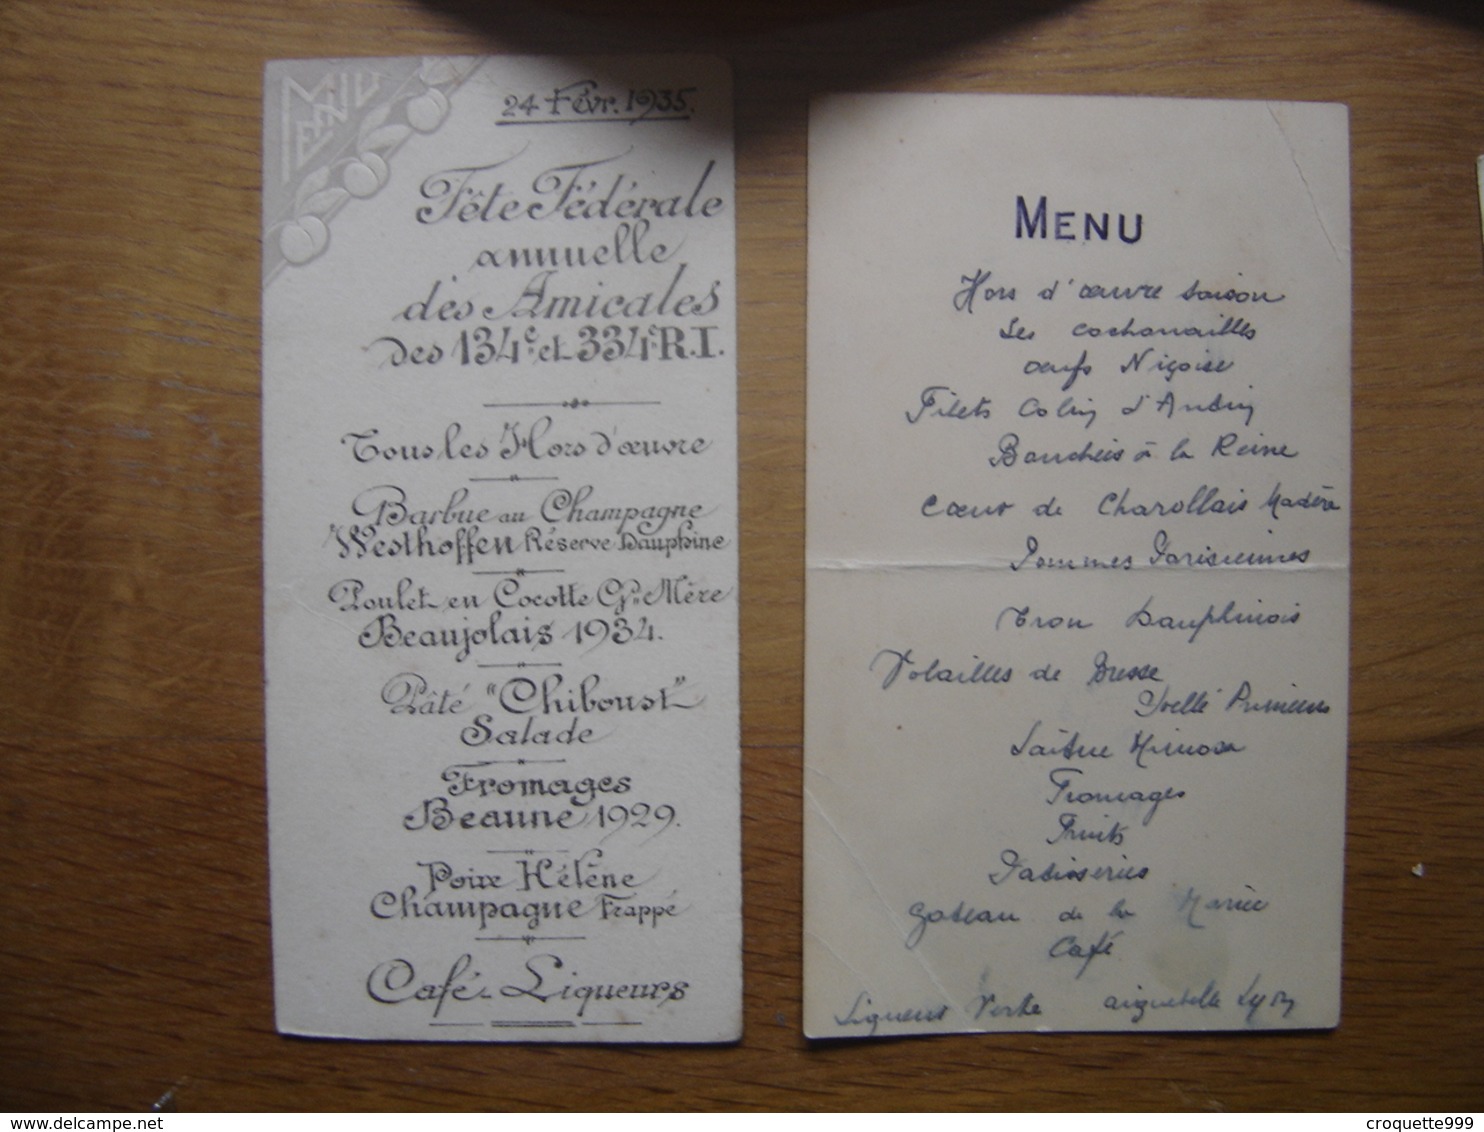 MENU
24 Févr. 1935.
Fête Fédérale
annuelle
des Amicales
des 134e et 334e R.I.
Tous les Hors d'œuvre
Barbue au Champagne
Westhoffen Réserve Dauphine
Poulet en Cocotte Gd Mère
Beaujolais 1934.
Pâté "Chiboust"
Salade
Fromages
Beaune 1929.
Poire Hélène
Champagne Frappé
Café - Liqueurs
MENU
Hors d'œuvre saison
Les cochonailles
œufs Niçoise
Filets Colin d'Antin
Bouchées à la Reine
Cœur de Charollais Madère
Pommes Parisiennes
Dauphinois
Volailles de Bresse
Laitue Mimosa
Fromages
Fruits
Patisseries
Gateau de la Mariée
Café
Liqueur Verte aiguebelle Lyon
croquette999